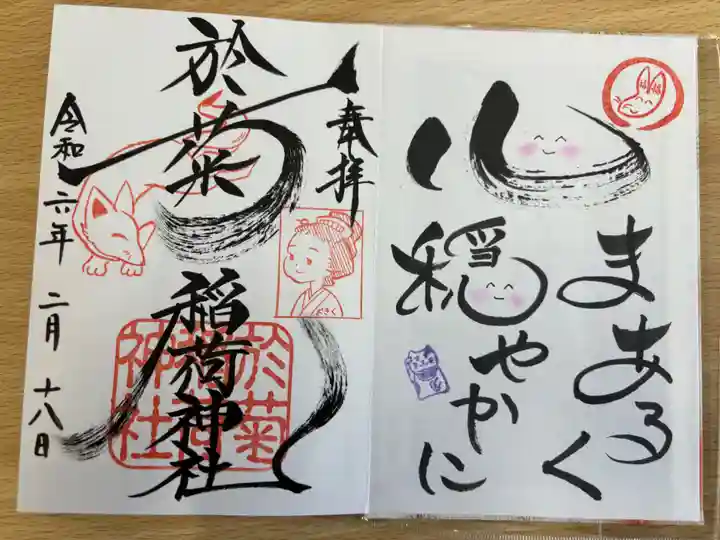 心
まあるく
穏やかに
奉拝
於菊稲荷神社
令和六年二月十八日
おきく
於菊
稲荷
神社